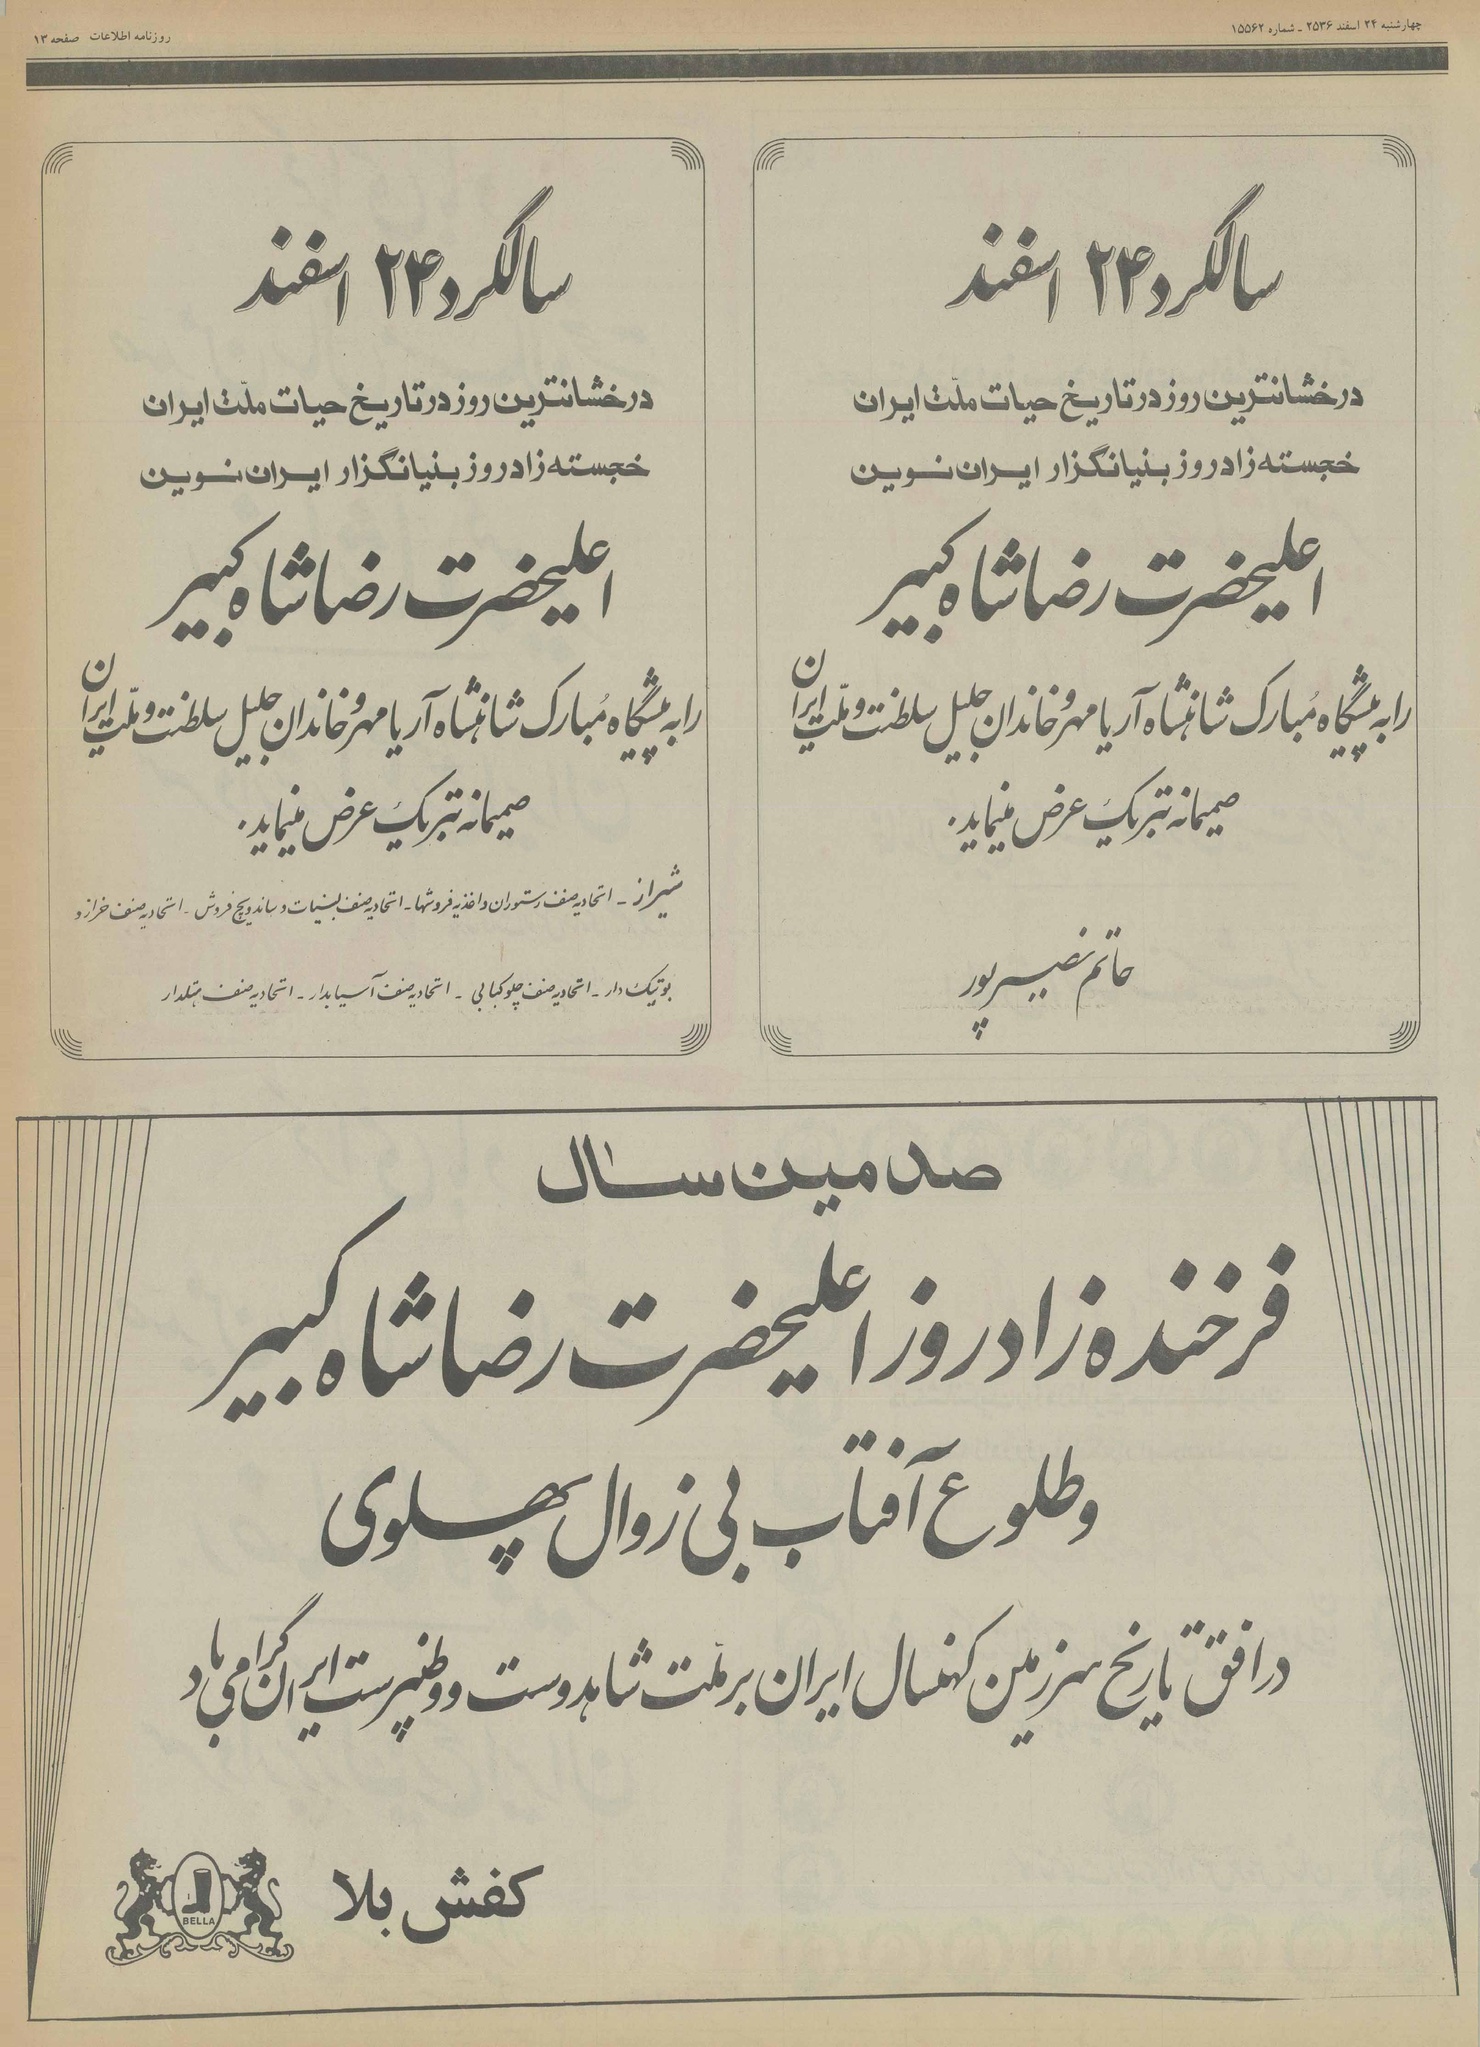 چهارشنبه ۲۴ اسفند ۲۵۳۶ ـ شماره ۱۵۵۶۲
روزنامه اطلاعات صفحه ۱۳
سالگرد ۲۴ اسفند
درخشانترین روز در تاریخ حیات ملّت ایران
خجسته زادروز بنیانگزار ایران نوین
اعلیحضرت رضاشاه کبیر
را به پیشگاه مُبارک شاهنشاه آریامهر و خاندان جلیل سلطنت و ملّت ایران
صمیمانه تبریک عرض مینماید.
حاتم نصیرپور
سالگرد ۲۴ اسفند
درخشانترین روز در تاریخ حیات ملّت ایران
خجسته زادروز بنیانگزار ایران نوین
اعلیحضرت رضاشاه کبیر
را به پیشگاه مُبارک شاهنشاه آریامهر و خاندان جلیل سلطنت و ملّت ایران
صمیمانه تبریک عرض مینماید.
شیراز ـ اتحادیه صنف رستوران و اغذیه فروشها ـ اتحادیه صنف لبنیات و ساندویچ فروش ـ اتحادیه صنف خراز و
بوتیک دار ـ اتحادیه صنف چلوکبابی ـ اتحادیه صنف آسیابدار ـ اتحادیه صنف هتلدار
صدمین سال
فرخنده زادروز اعلیحضرت رضاشاه کبیر
و طلوع آفتاب بی زوال پهلوی
در افق تاریخ سرزمین کهنسال ایران بر ملّت شاهدوست و وطنپرست ایران گرامی باد
کفش بلا
BELLA